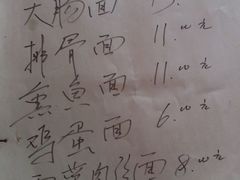 大肠面 13.
排骨面 11.00元
熏鱼面 11.00元
鸡蛋面 6.00元
菜肉丝面 8.00元